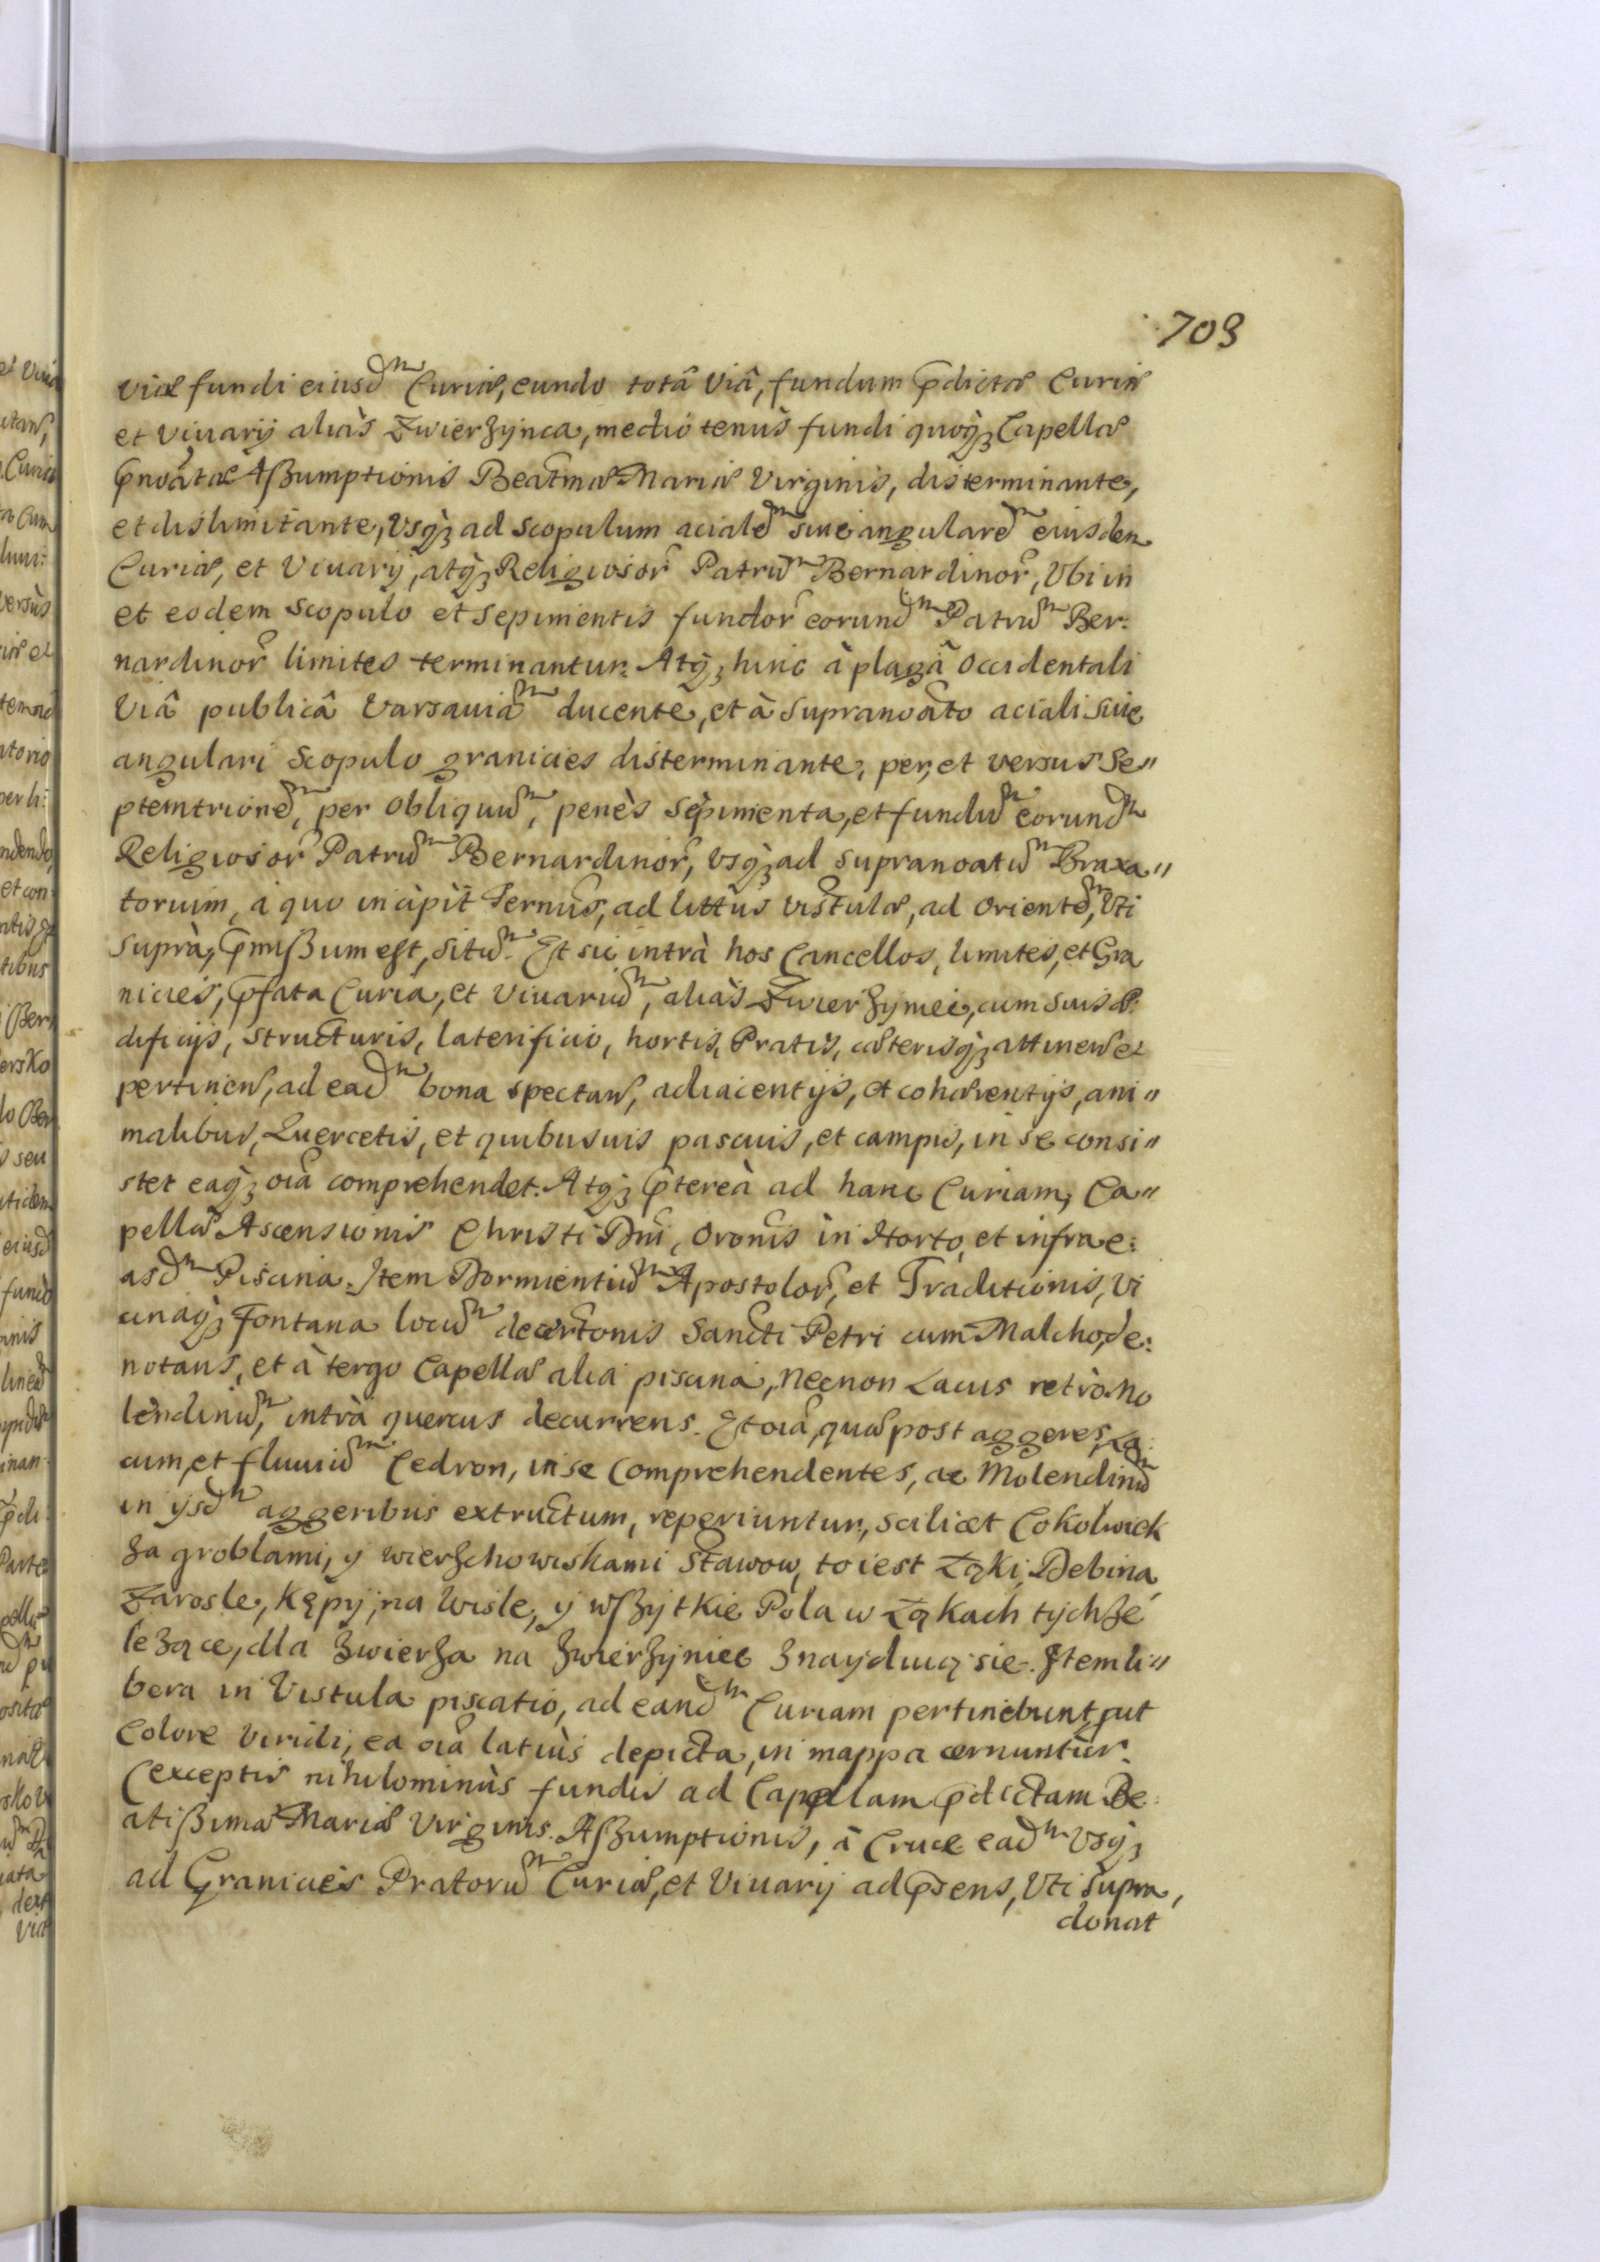 703
viæ fundi eiusd̃m Curiæ, eundo totâ Viâ, fundum p̃dictæ Curiæ
et Viuarij aliàs Zwierzynca, medio tenùs fundi quoq̃ Capellæ
p̃noãtæ Aßumptionis Beatm̃æ Mariæ Virginis, disterminante,
et dislimitante, Vsq̃ ad scopulum acialem̃ siue angularem̃ eiusdem
Curiæ, et Viuarij, atq̃ Religiosor̃ Patrum̃ Bernardinor̃, Vbi in
et eodem scopulo et sepimentis fundor̃ eorund̃m Patrum̃ Ber:
nardinor̃ limites terminantur. Atq̃ hinc à plagâ Occidentali
Viâ publicâ Varsauiam̃ ducente, et à supranoãto aciali siue
angulari scopulo granicies disterminante, per, et versus Se"
ptemtrionem̃, per obliquum̃, penès sepimenta, et fundum̃ eorund̃m
Religiosor̃ Patrum̃ Bernardinor̃, Vsq̃ ad supranoatum̃ Braxa"
torium, à quo incipit Terminus, ad littus Vistulæ, ad Orientem̃, Vti
suprà, p̃mißum est, situm̃. Et sic intrà hos Cancellos, limites, et Gra
nicies, p̃fata Curia, et Viuarium̃, aliàs Zwierzyniec, cum suis æ:
dificijs, structuris, laterificio, hortis, Pratis, cæterisq̃ attinen̄ et
pertinen̄, ad ead̃m bona spectan̄, adiacentijs, et cohærentijs, ani"
malibus, Quercetis, et quibusuis pascuis, et campis, in se consi"
stet eaq̃ oĩa comprehendet. Atq̃ p̃tereà ad hanc Curiam, Ca"
pellæ Ascensionis Christi Dñi, Oroñis in Horto, et infra e:
asd̃m Piscina. Item Dormientium̃ Apostolor̃, et Traditionis, Vi
cinaq̃ Fontana locum̃ decertoñis Sancti Petri cum Malcho, de:
notans, et à tergo Capellæ alia piscina, Necnon Lacus retrò Mo
lendinum̃, intrà quercus decurrens. Et oĩa, quæ post aggeres, La:
cum, et fluuium̃ Cedron, in se Comprehendentes, ac Molendinum̃
in ijsd̃m aggeribus extructum, reperiuntur, scilicet Cokolwiek
za groblami, y wierzchowiskami Stawow, to iest Łąki, Debina,
Zarosle, Kępy, na Wisle, y wszytkie Pola w Łąkach tychże
leżące, dla Zwierza na Zwierzyniec znayduią sie. Item li"
bera in Vistula piscatio, ad eand̃m Curiam pertinebunt, put
Colore Viridi, ea oĩa latiùs depicta, in mappa cernuntur.
Exceptis nihilominùs fundis ad Capellam p̃dictam Be:
atißimæ Mariæ Virginis Aßumptionis, à Cruce ead̃m Vsq̃
ad Granicies Pratorum̃ Curiæ, et Viuarij ad p̃sens, Vti supra,
donat